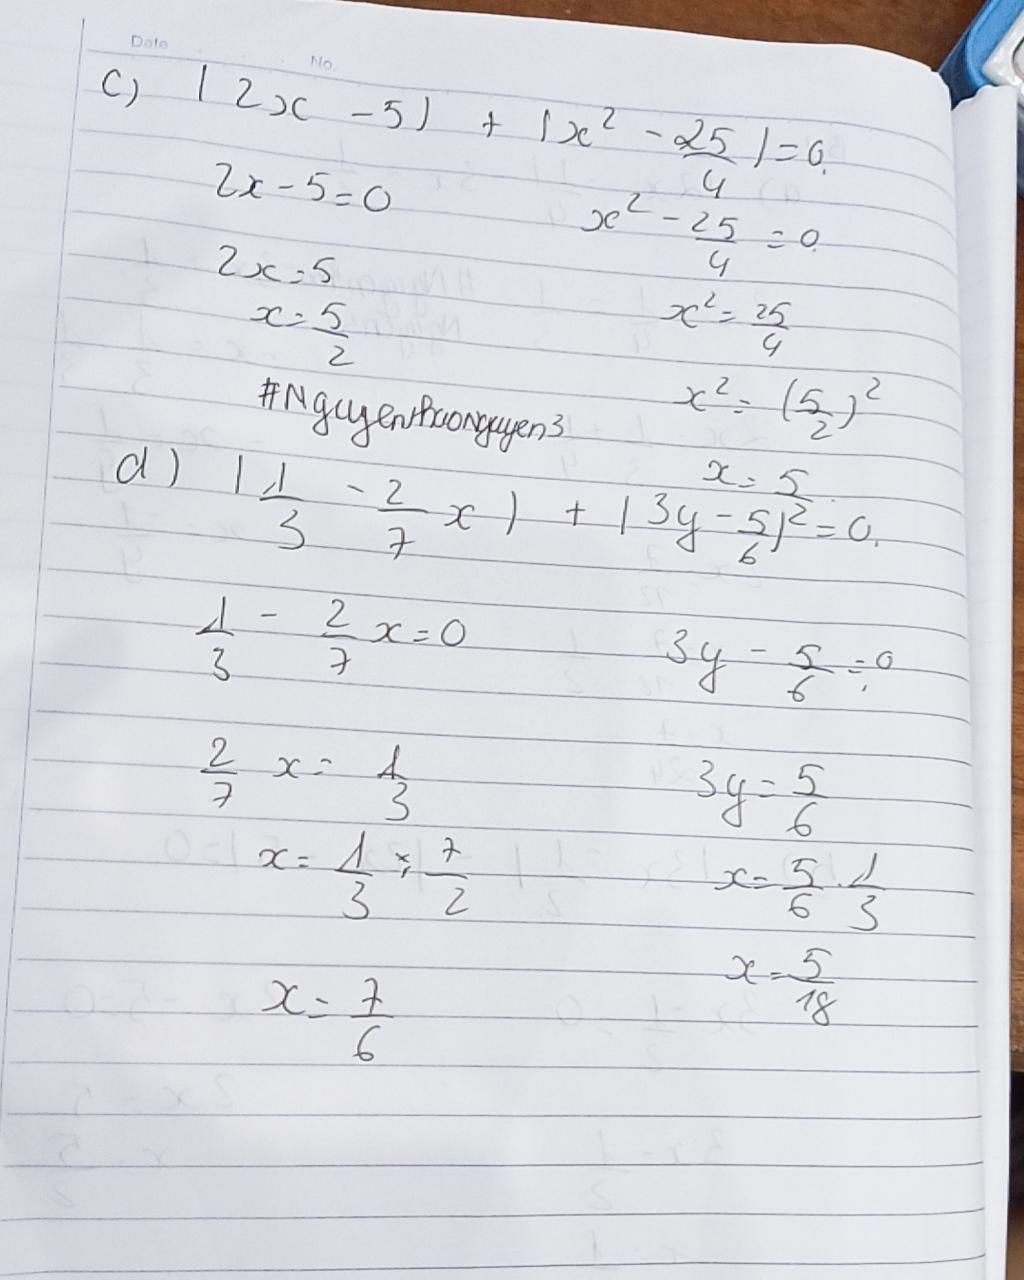 Date No.
c) |2x - 5| + |x² - 25/4| = 0
2x - 5 = 0
x² - 25/4 = 0
2x = 5
x² = 25/4
x = 5/2
x² = (5/2)²
#Nguyenthuonguyen3
x = 5/2
d) |1/3 - 2/7 x| + |3y - 5/6|² = 0.
1/3 - 2/7 x = 0
3y - 5/6 = 0
2/7 x = 1/3
3y = 5/6
x = 1/3 : 7/2
x = 5/6 . 1/3
x = 7/6
x = 5/18